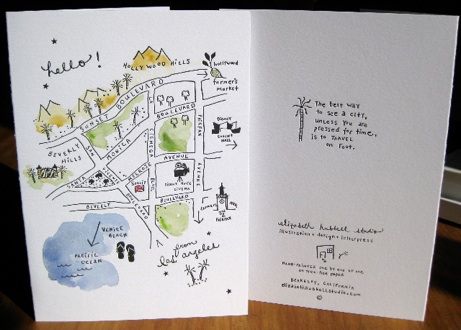 hello!
HOLLYWOOD HILLS
hollywood
farmer's
market
SUNSET BOULEVARD
BOULEVARD
FAIRFAX
AVENUE
SANTA MONICA
LA CIENEGA
MELROSE
AVENUE
DISNEY
CONCERT
HALL
BEVERLY
HILLS
SILENT MOVIE
CINEMA
BEVERLY
BOULEVARD
FARMERS
VENICE
BEACH
PACIFIC
OCEAN
from
los angeles
The best way
to see a city,
unless you are
pressed for time,
is to travel
on foot.
elizabeth hubbell studio
illustration + design + letterpress
BERKELEY, CALIFORNIA
elizabethhubbellstudio.com
©